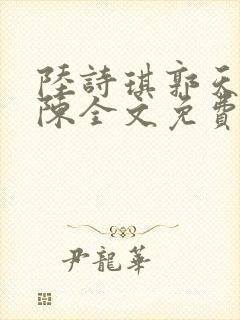 陸詩琪郭天
陳全文免費
尹龍華